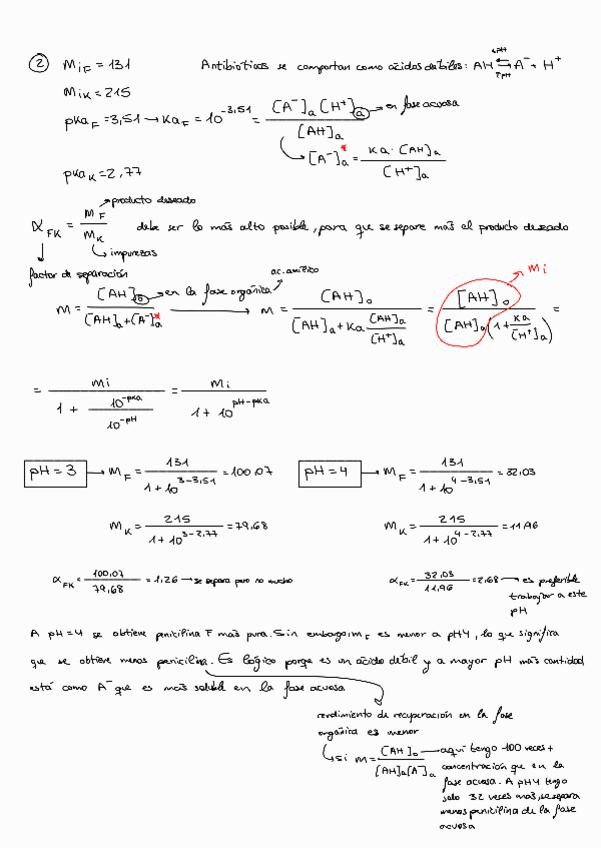 ② miF = 131 Antibioticos se comportan como acidos débiles: AH ⇆ A⁻ + H⁺
↓pH
↑pH
miK = 215
pKaF = 3,51 → KaF = 10^-3,51 = [A⁻]a [H⁺]a / [AH]a → en fase acuosa
[A⁻]a* = Ka · [AH]a / [H⁺]a
pKaK = 2,77
αFK = mF / mK debe ser lo más alto posible, para que se separe más el producto deseado
producto deseado
impurezas
factor de separación
m = [AH]o / [AH]a + [A⁻]a* → en la fase orgánica
m = [AH]o / [AH]a + Ka [AH]a / [H⁺]a = [AH]o / [AH]a (1 + Ka / [H⁺]a) =
mi
= mi / 1 + 10^-pKa / 10^-pH = mi / 1 + 10^pH-pKa
pH = 3 → mF = 131 / 1 + 10^3-3,51 = 100,07
mK = 215 / 1 + 10^3-2,77 = 79,68
αFK = 100,07 / 79,68 = 1,26 → se separa pero no mucho
pH = 4 → mF = 131 / 1 + 10^4-3,51 = 32,03
mK = 215 / 1 + 10^4-2,77 = 11,96
αFK = 32,03 / 11,96 = 2,68 → es preferible
trabajar a este
pH
A pH=4 se obtiene penicilina F más pura. Sin embargo, mF es menor a pH4, lo que significa
que se obtiene menos penicilina. Es lógico porque es un ácido débil y a mayor pH más cantidad
está como A⁻ que es más soluble en la fase acuosa
rendimiento de recuperación en la fase
orgánica es menor
si m = [AH]o / [AH]a[A⁻]a → aquí tengo 100 veces +
concentración que en la
fase acuosa. A pH4 tengo
solo 32 veces más, se separa
menos penicilina de la fase
acuosa